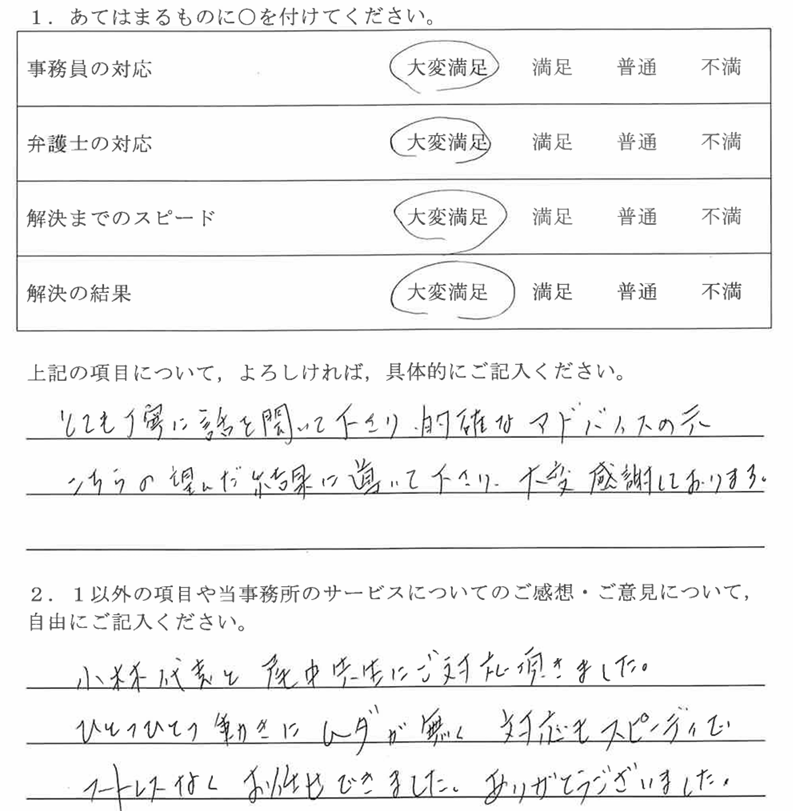 1．あてはまるものに○を付けてください。
事務員の対応 大変満足 満足 普通 不満
弁護士の対応 大変満足 満足 普通 不満
解決までのスピード 大変満足 満足 普通 不満
解決の結果 大変満足 満足 普通 不満
上記の項目について，よろしければ，具体的にご記入ください。
とても丁寧に話を聞いて下さり、的確なアドバイスの元
こちらの望んだ結果に導いて下さり、大変感謝しております。
2．1以外の項目や当事務所のサービスについてのご感想・ご意見について，
自由にご記入ください。
小林代表と 先生にご対応頂きました。
ひとつひとつ動きにムダが無く 対応もスピーディで
ストレスなく お任せできました。ありがとうございました。